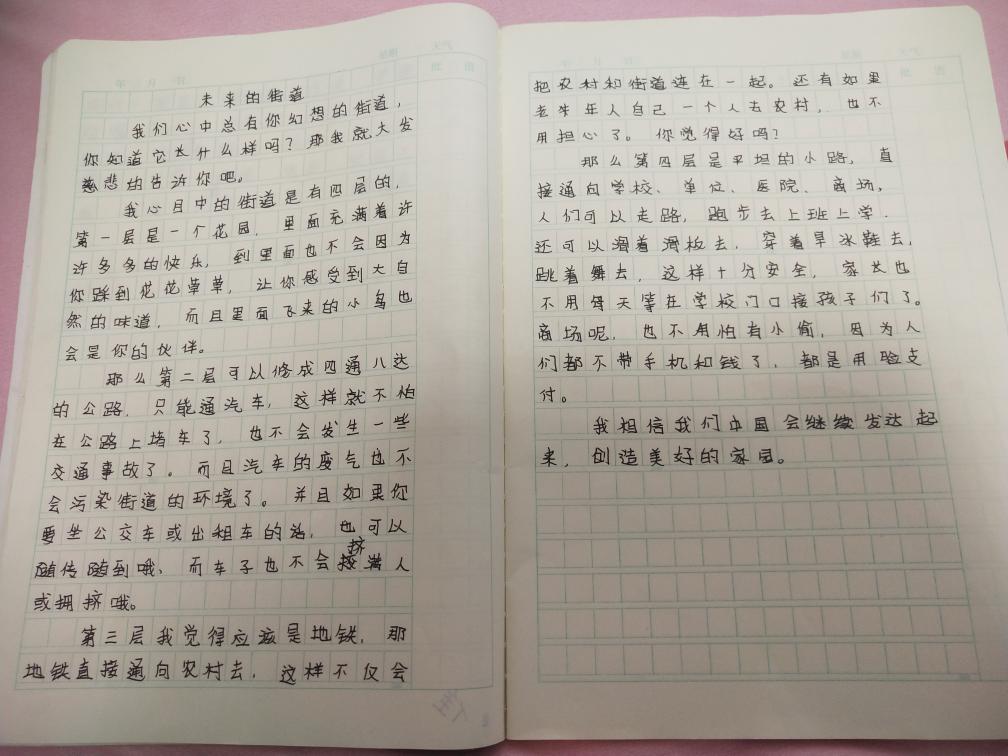 未来的街道
我们心中总有你幻想的街道，
你知道它长什么样吗？那我就大发
慈悲的告诉你吧。
我心目中的街道是有四层的，
第一层是一个花园，里面充满着许
许多多的快乐，到里面也不会因为
你踩到花花草草，让你感受到大自
然的味道，而且里面飞来的小鸟也
会是你的伙伴。
那么第二层可以修成四通八达
的公路，只能通汽车，这样就不怕
在公路上堵车了，也不会发生一些
交通事故了。而且汽车的废气也不
会污染街道的环境了。并且如果你
要坐公交车或出租车的话，也可以
随传随到哦，而车子也不会挤满人
或拥挤哦。
第三层我觉得应该是地铁，那
地铁直接通向农村去，这样不仅会
把农村和街道连在一起。还有如果
老年人自己一个人去农村，也不
用担心了。你觉得好吗？
那么第四层是平坦的小路，直
接通向学校、单位、医院、商场，
人们可以走路，跑步去上班上学.
还可以滑着滑板去，穿着旱冰鞋去，
跳着舞去，这样十分安全，家长也
不用每天等在学校门口接孩子们了。
商场呢，也不用怕有小偷，因为人
们都不带手机和钱了，都是用脸支
付。
我相信我们中国会继续发达起
来，创造美好的家园。